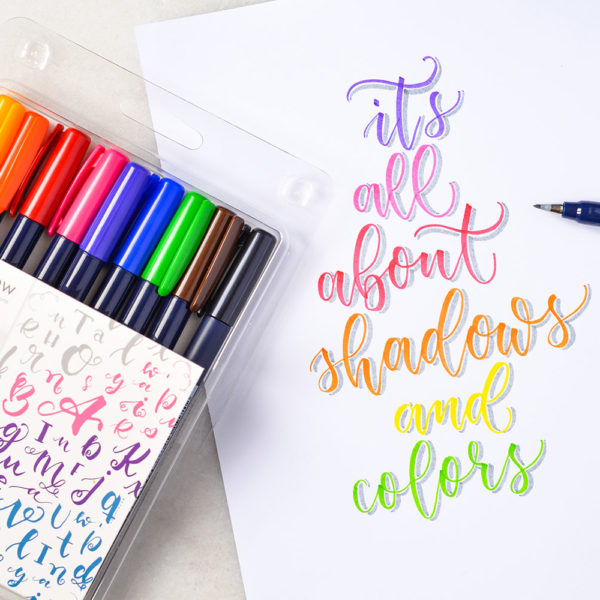 it's
all
about
shadows
and
colors